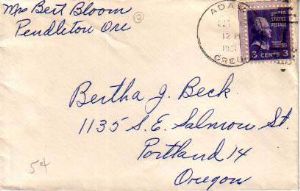 Mrs Bert Bloom
Pendleton Ore
ADA
12 M
OREGO
UNITED STATES POSTAGE
3 CENTS 3
Bertha J. Beck
1135 S.E. Salmon St.
Portland 14
Oregon
5¢